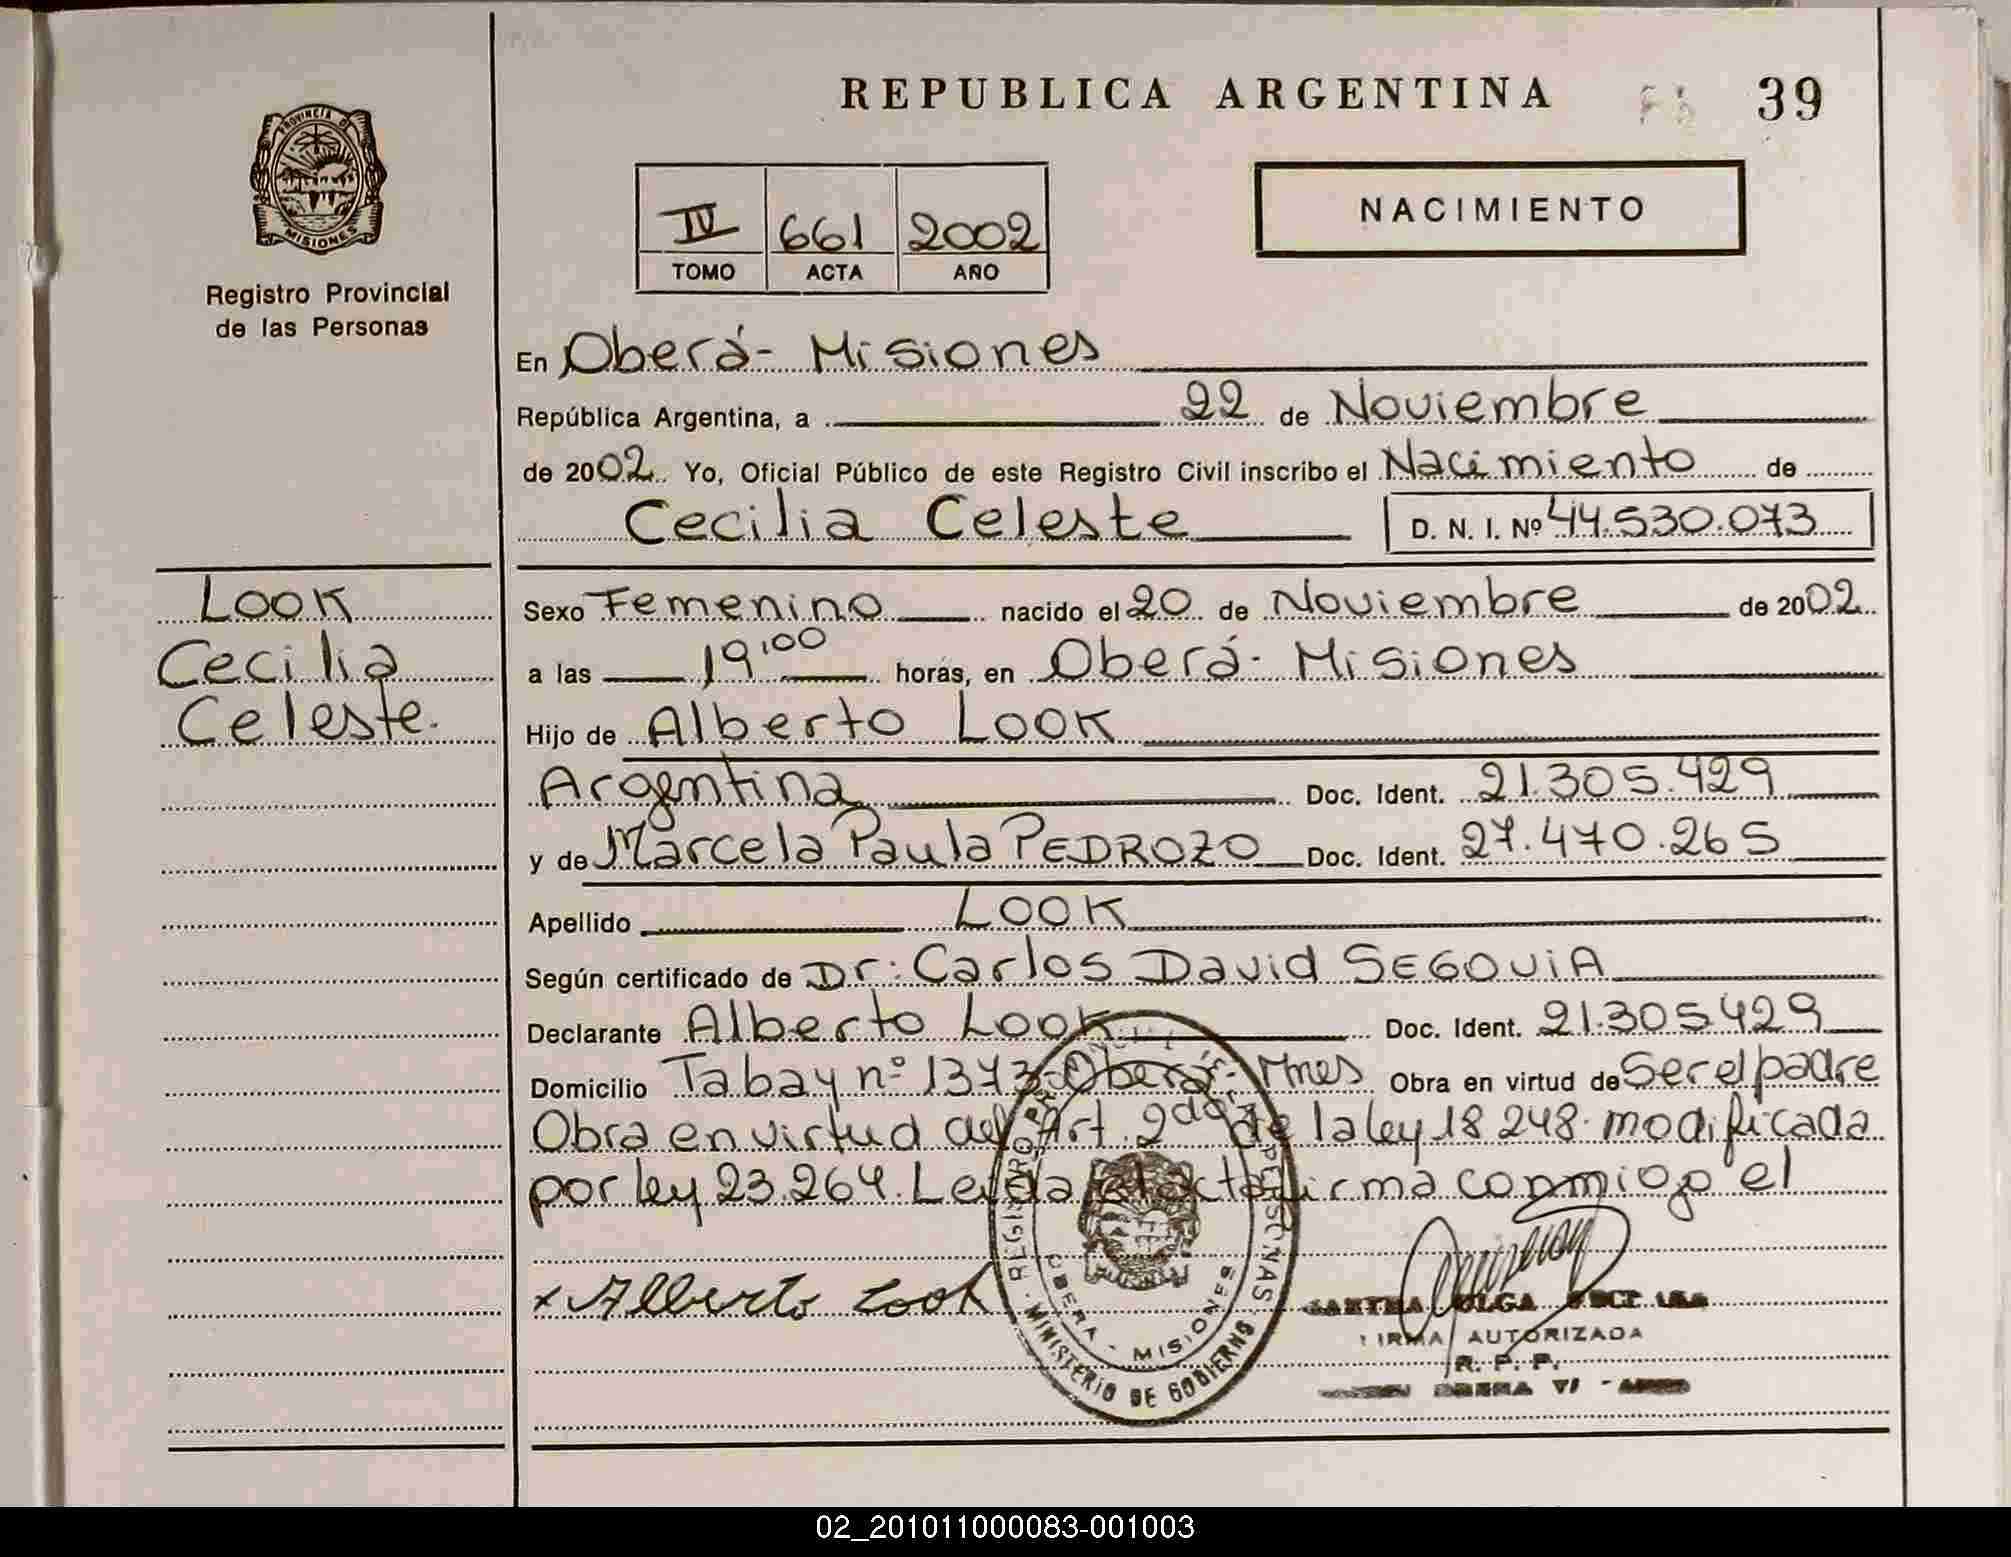 REPUBLICA ARGENTINA
39
PROVINCIA DE
MISIONES
Registro Provincial
de las Personas
IV 661 2002
TOMO ACTA AÑO
NACIMIENTO
En Oberá- Misiones
República Argentina, a 22 de Noviembre
de 2002 Yo, Oficial Público de este Registro Civil inscribo el Nacimiento de
Cecilia Celeste D. N. I. Nº 44.530.073
Look
Cecilia
Celeste.
Sexo Femenino nacido el 20 de Noviembre de 2002
a las 19,00 horas, en Oberá- Misiones
Hijo de Alberto Look
Argentina Doc. Ident. 21.305.429
y de Marcela Paula PEDROZO Doc. Ident. 27.470.265
Apellido Look
Según certificado de Dr: Carlos David SEGOViA
Declarante Alberto Look Doc. Ident. 21.305429
Domicilio Tabay nº 1373-Oberá- Mnes Obra en virtud de Ser el padre
Obra en virtud del Art. 2do de la ley 18 248. modificada
por ley 23.264. Leida el acta firma conmigo el
x Alberto Look
OBERA - MISIONES
MINISTERIO DE GOBIERNO
OLGA
FIRMA AUTORIZADA
R. P. P.
02_201011000083-001003